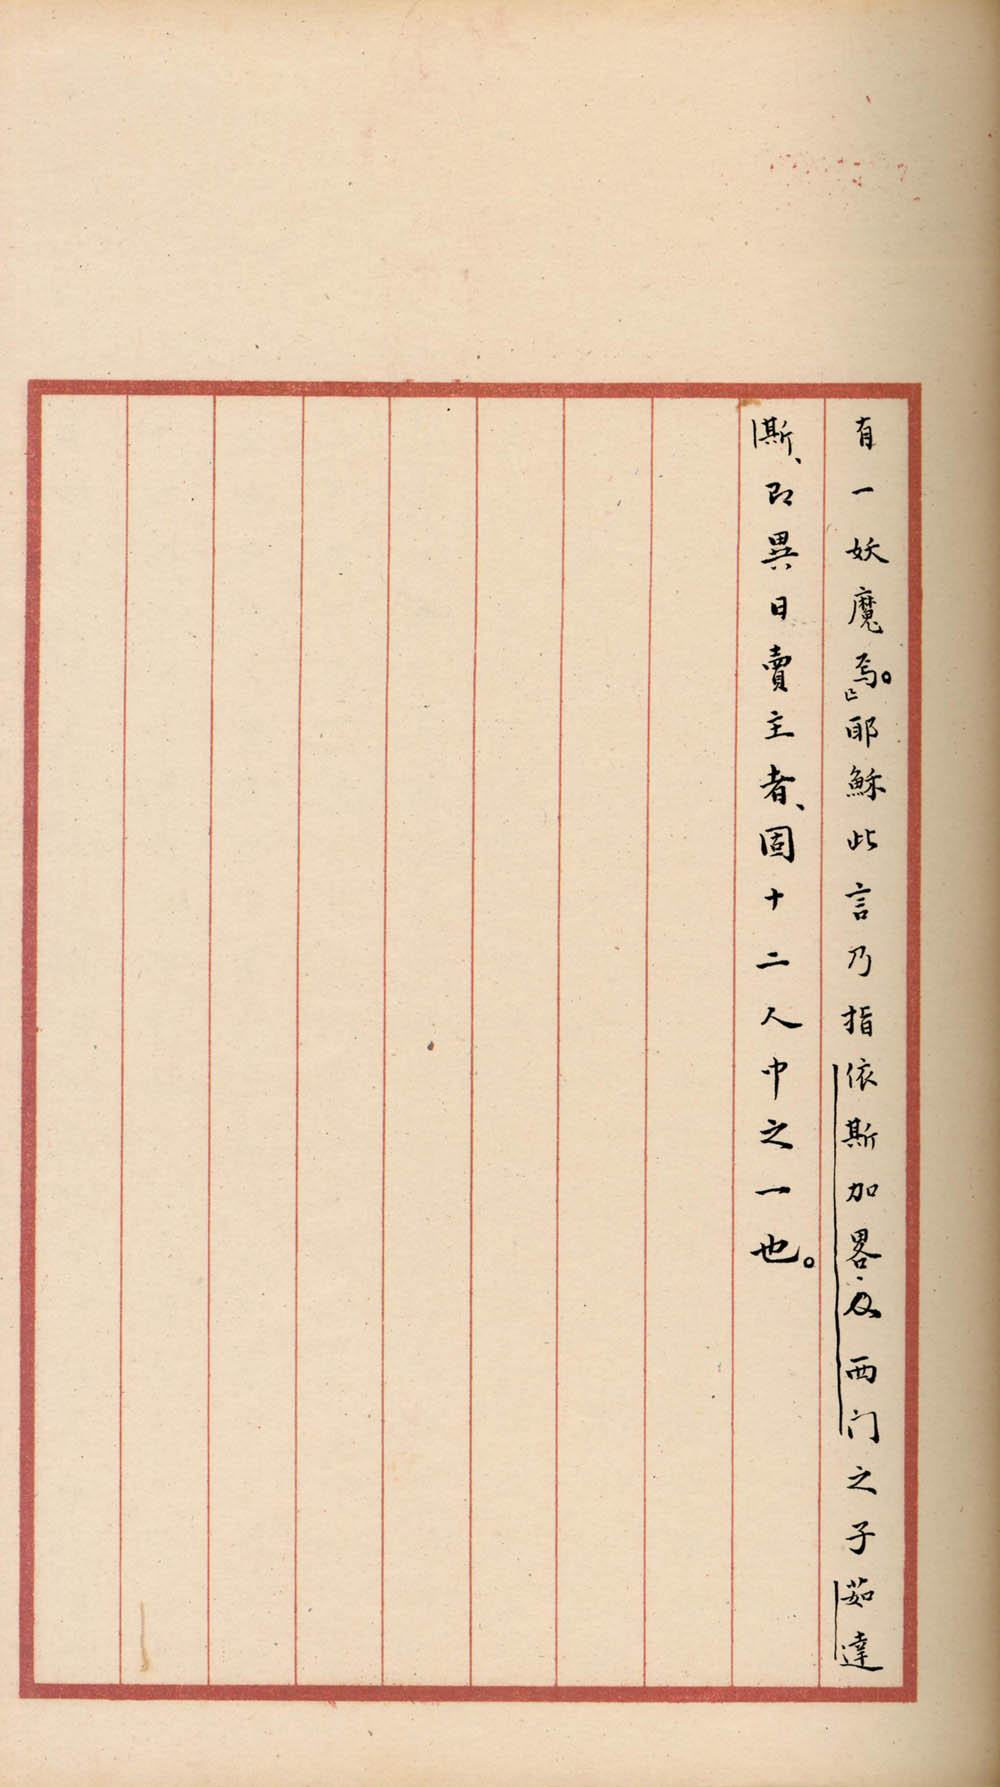 有一妖魔焉。」耶穌此言乃指依斯加畧及西门之子茹達
斯、即異日賣主者、固十二人中之一也。